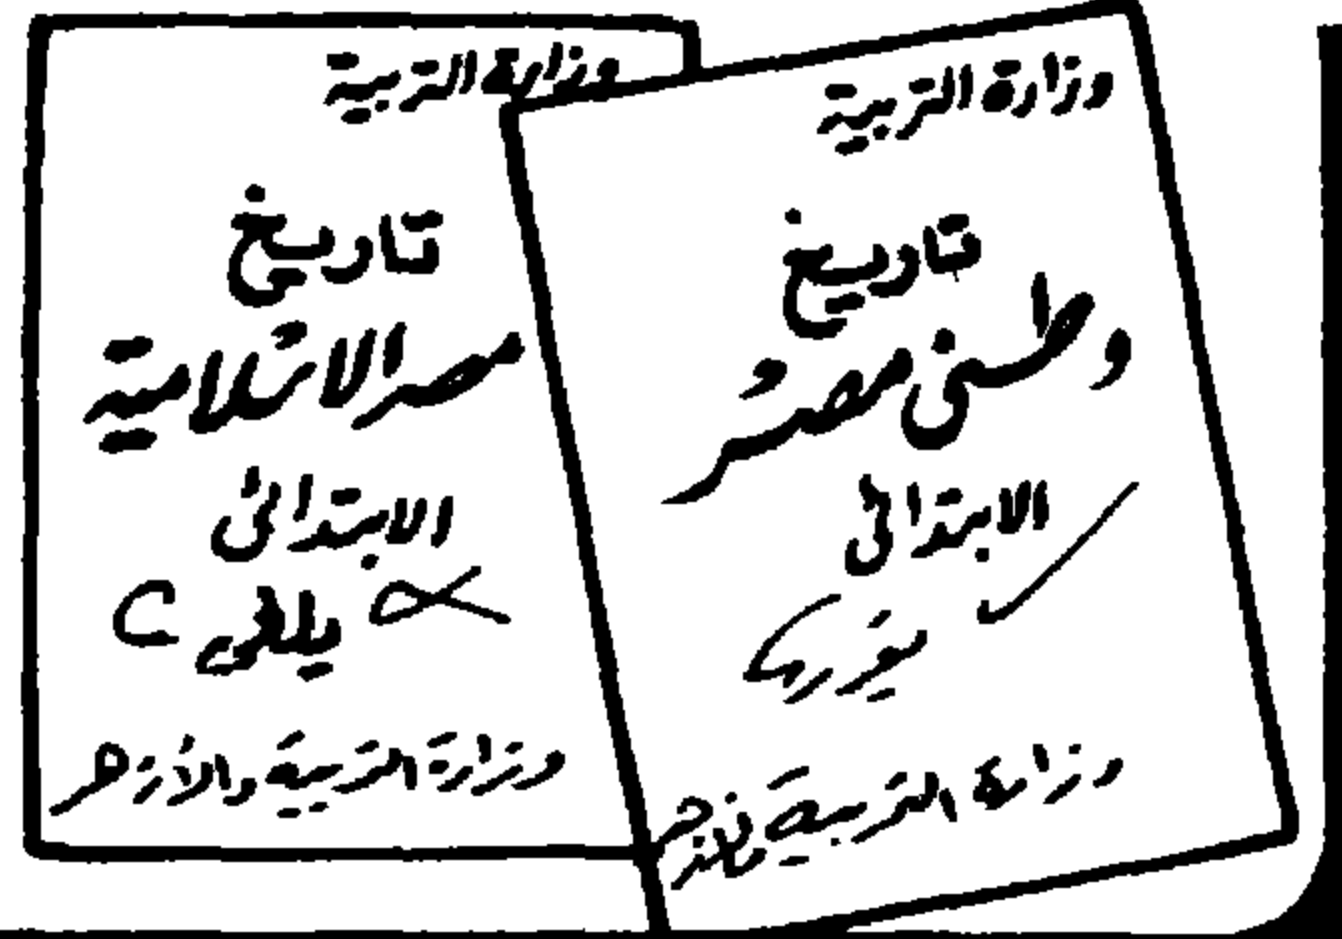 وزارة التربية
تاريخ
وطني مصر
الابتدائى
يقررها
وزارة التربية والأزهر
وزارة التربية
تاريخ
مصر الاسلامية
الابتدائى
يلغى
وزارة التربية والأزهر